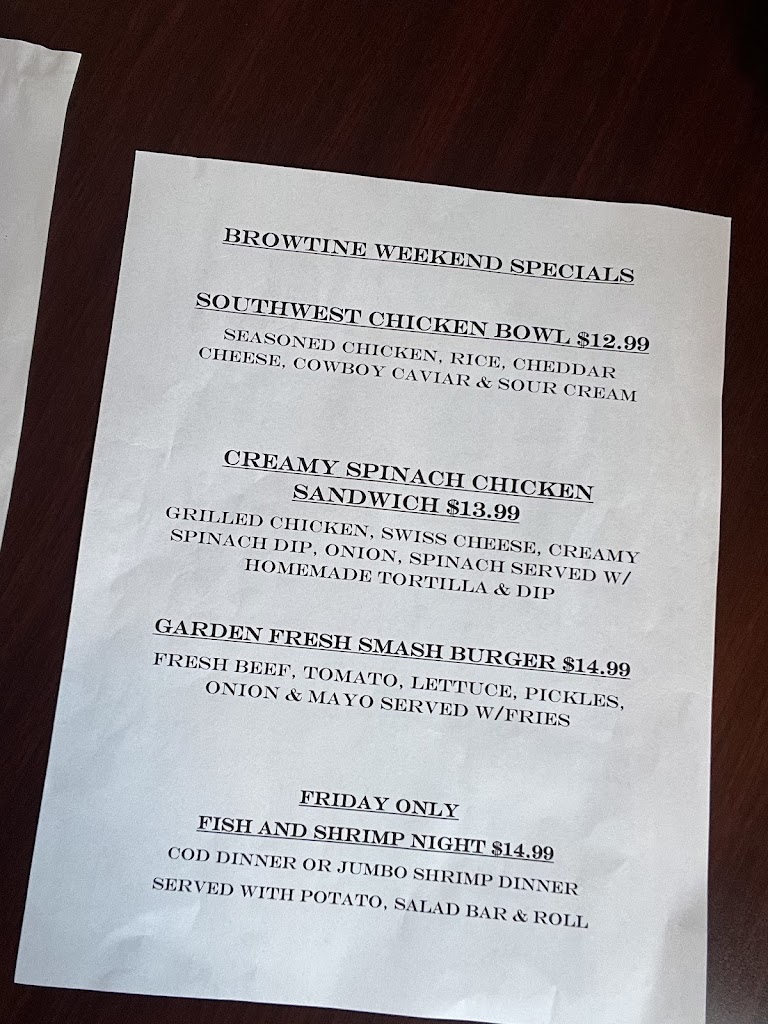 BROWTINE WEEKEND SPECIALS
SOUTHWEST CHICKEN BOWL $12.99
SEASONED CHICKEN, RICE, CHEDDAR
CHEESE, COWBOY CAVIAR & SOUR CREAM
CREAMY SPINACH CHICKEN
SANDWICH $13.99
GRILLED CHICKEN, SWISS CHEESE, CREAMY
SPINACH DIP, ONION, SPINACH SERVED W/
HOMEMADE TORTILLA & DIP
GARDEN FRESH SMASH BURGER $14.99
FRESH BEEF, TOMATO, LETTUCE, PICKLES,
ONION & MAYO SERVED W/FRIES
FRIDAY ONLY
FISH AND SHRIMP NIGHT $14.99
COD DINNER OR JUMBO SHRIMP DINNER
SERVED WITH POTATO, SALAD BAR & ROLL